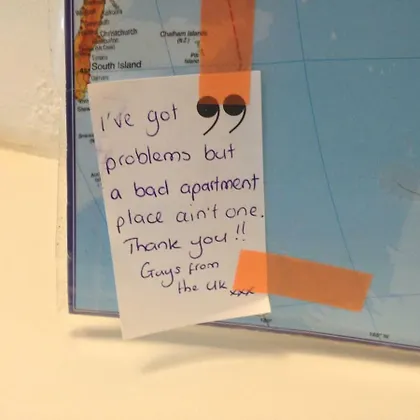 Christchurch
Chatham Islands
(N.Z.)
South Island
I've got ”
problems but
a bad apartment
place ain't one.
Thank you !!
Guys from
the UK xxx